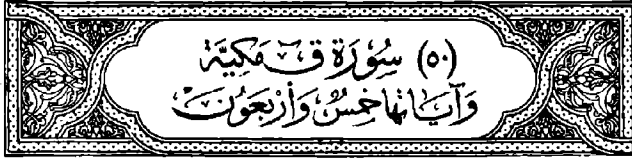 (٥٠) سُورَة ق مَكِيَّة
وَآيَاتهَا خَمْسٌ وَأَرْبَعُونَ